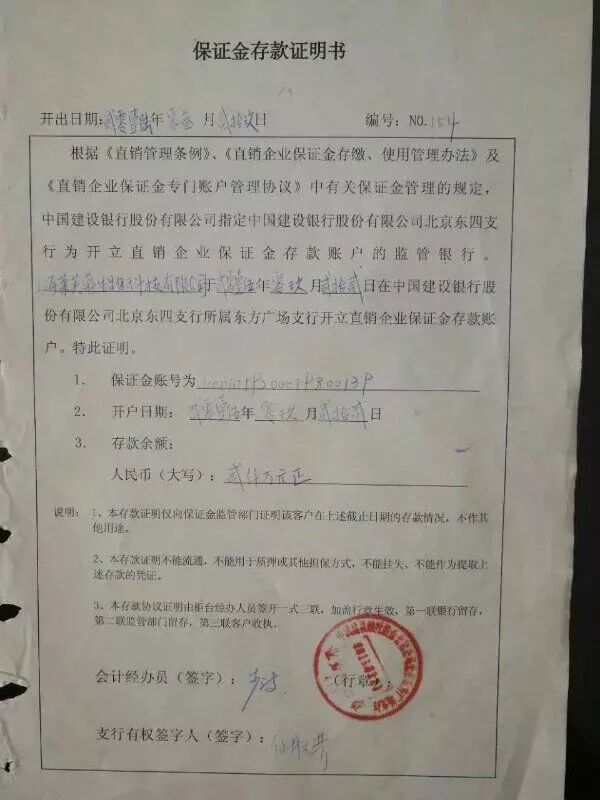 保证金存款证明书
开出日期:贰零壹陆年零叁月贰拾玖日 编号: NO.154
根据《直销管理条例》、《直销企业保证金存缴、使用管理办法》及
《直销企业保证金专门账户管理协议》中有关保证金管理的规定,
中国建设银行股份有限公司指定中国建设银行股份有限公司北京东四支
行为开立直销企业保证金存款账户的监管银行。
科技有限公司于贰零壹伍年零玖月贰拾贰日在中国建设银行股
份有限公司北京东四支行所属东方广场支行开立直销企业保证金存款账
户。特此证明。
1. 保证金账号为
2. 开户日期: 贰零壹伍年零玖月贰拾贰日
3. 存款余额:
人民币(大写): 贰仟万元正
说明: 1、本存款证明仅向保证金监管部门证明该客户在上述截止日期的存款情况,不作其
他用途。
2、本存款证明不能流通,不能用于质押或其他担保方式,不能挂失、不能作为提取上
述存款的凭证。
3、本存款协议证明由柜台经办人员签开一式三联,加盖行章生效,第一联银行留存,
第二联监管部门留存,第三联客户收执。
会计经办员(签字): (行章)
支行有权签字人(签字):